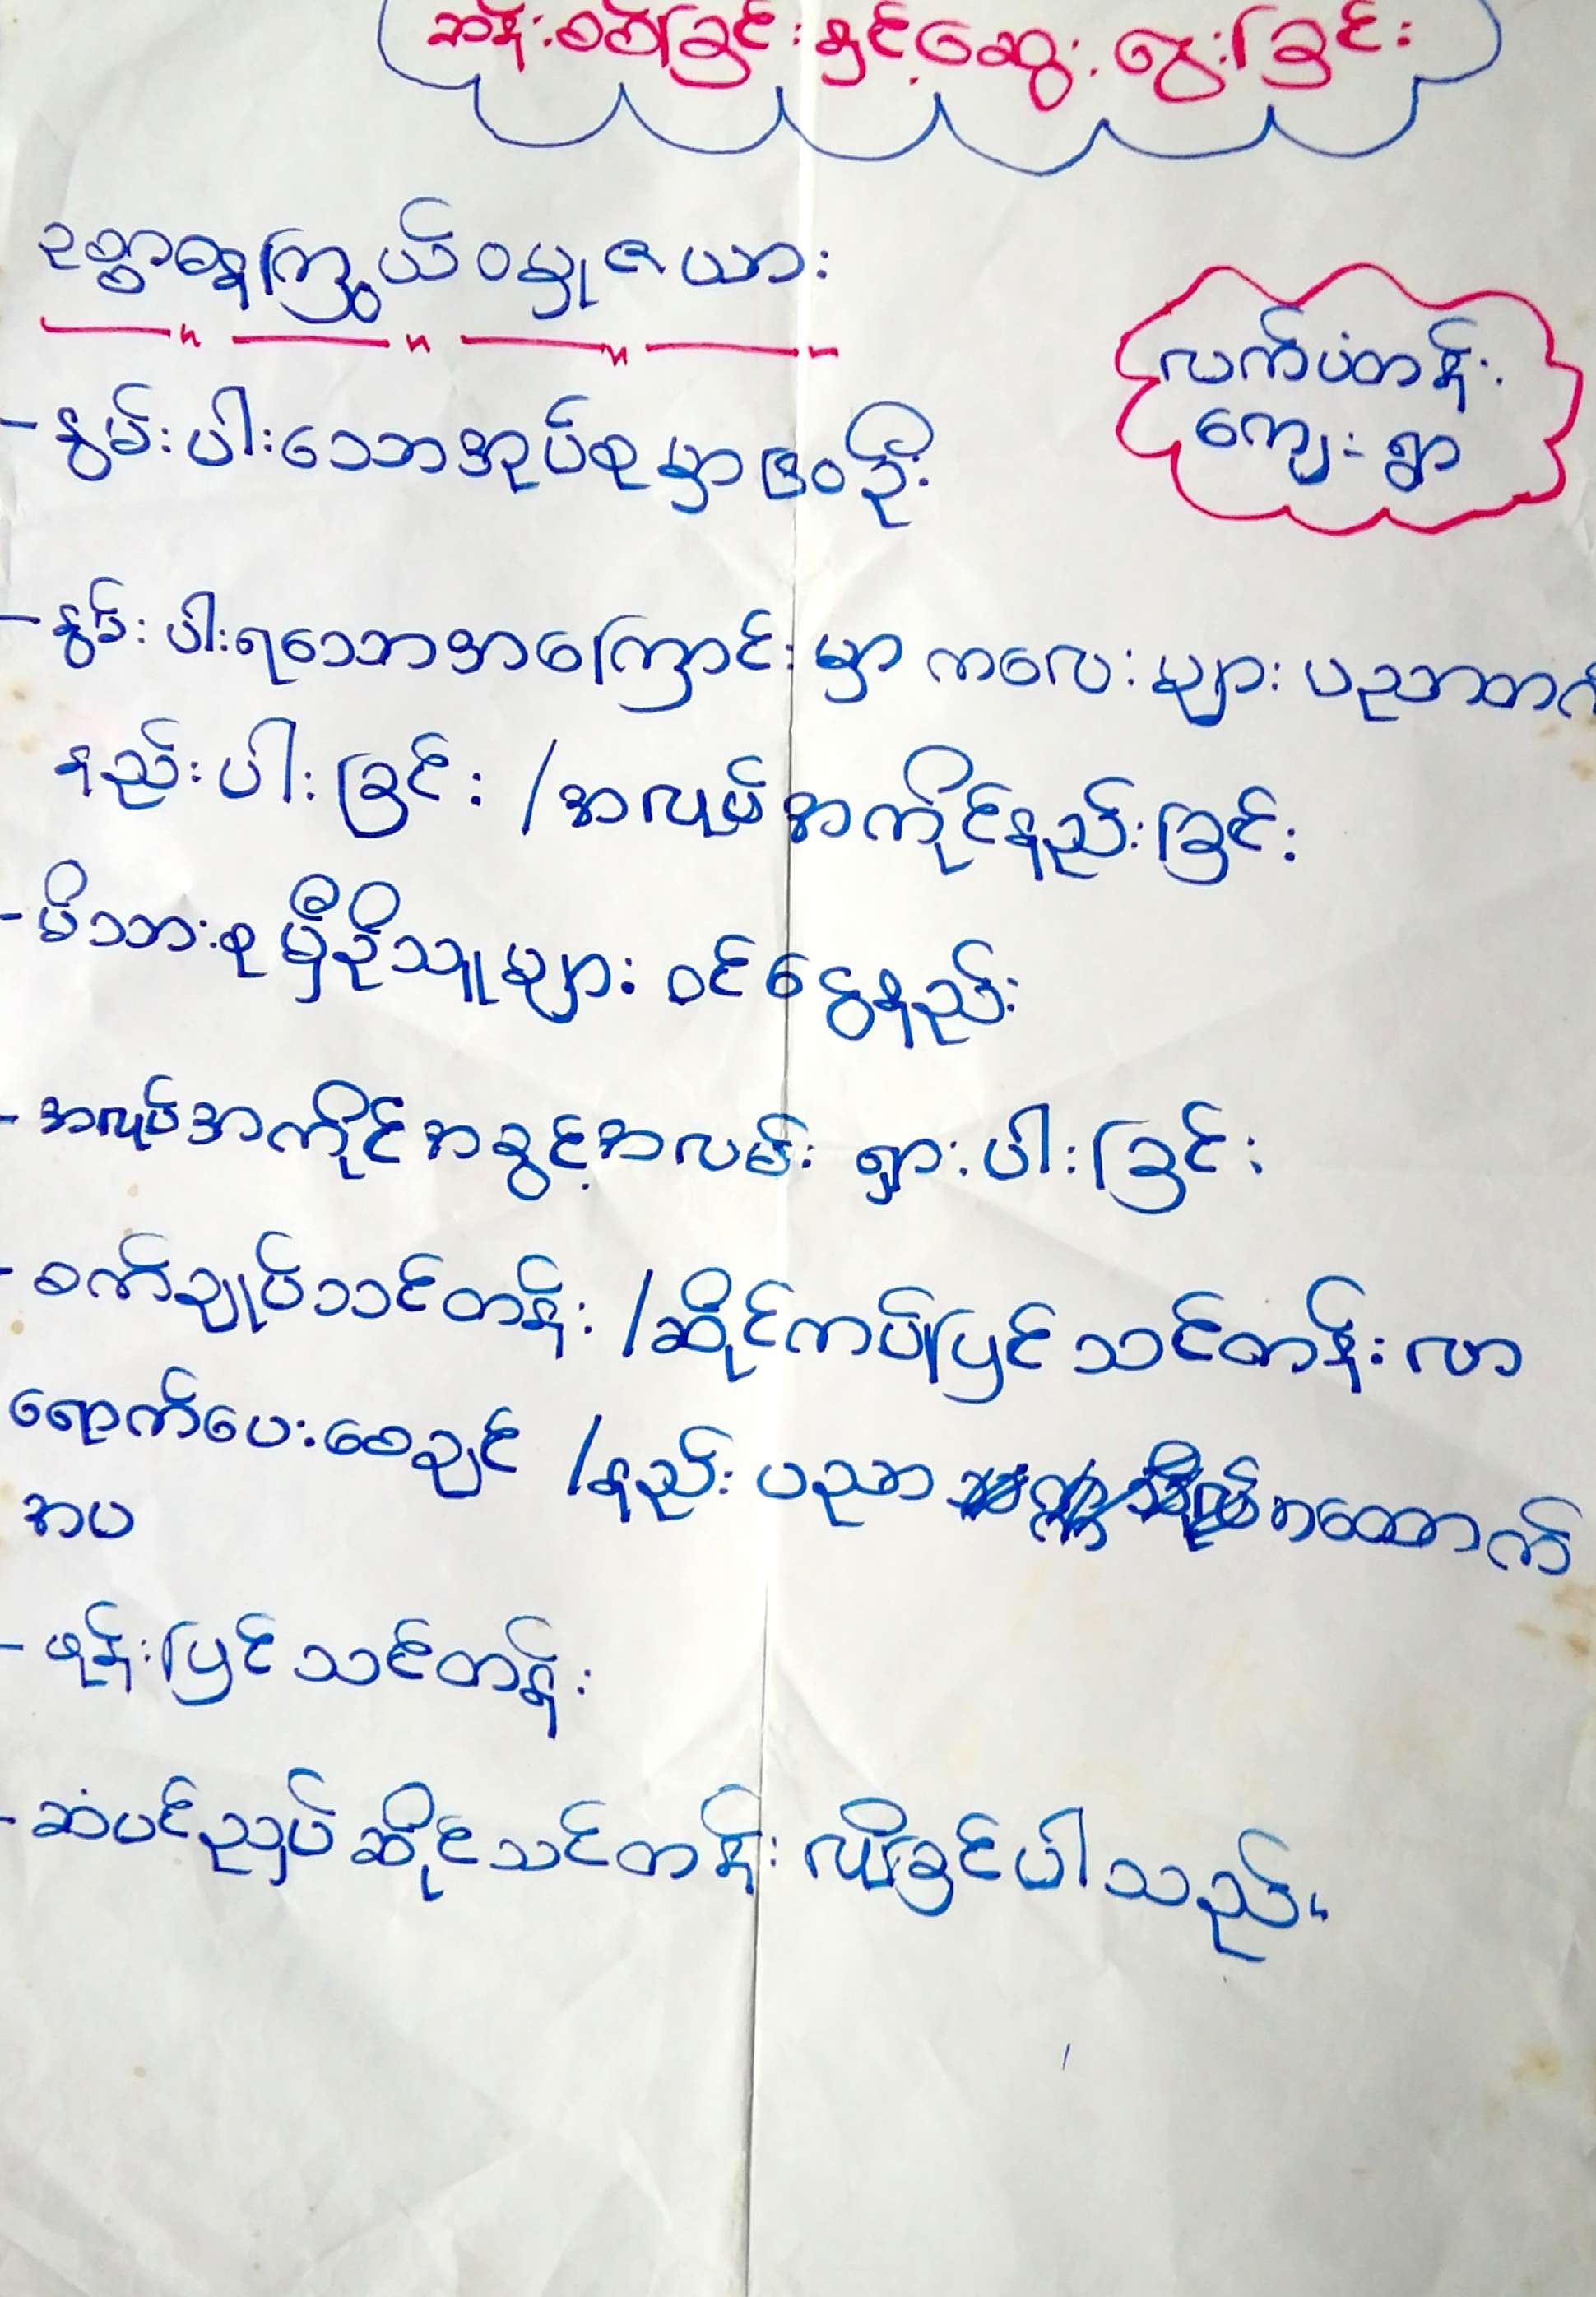 ဆန်းစစ်ခြင်းနှင့်ဆွေးနွေးခြင်း
ဥစ္စာဓနကြွယ်ဝမှုဇယား
လက်ပံတန်း
ကျေးရွာ
- နွမ်းပါးသောအုပ်စုမှာ ဦး
- နွမ်းပါးရသောအကြောင်းမှာ ကလေးများ ပညာတတ်
နည်းပါးခြင်း /အလုပ်အကိုင်နည်းခြင်း
- မိသားစုမှီခိုသူများ ဝင်ငွေနည်း
- အလုပ်အကိုင်အခွင့်အလမ်း ရှားပါးခြင်း
- စက်ချုပ်သင်တန်း /ဆိုင်ကယ်ပြင်သင်တန်း လာ
ရောက်ပေးစေချင် /နည်းပညာ အထောက်
အပ
- ဖုန်းပြင်သင်တန်း
- ဆံပင်ညှပ်ဆိုင်သင်တန်း လိုချင်ပါသည်။